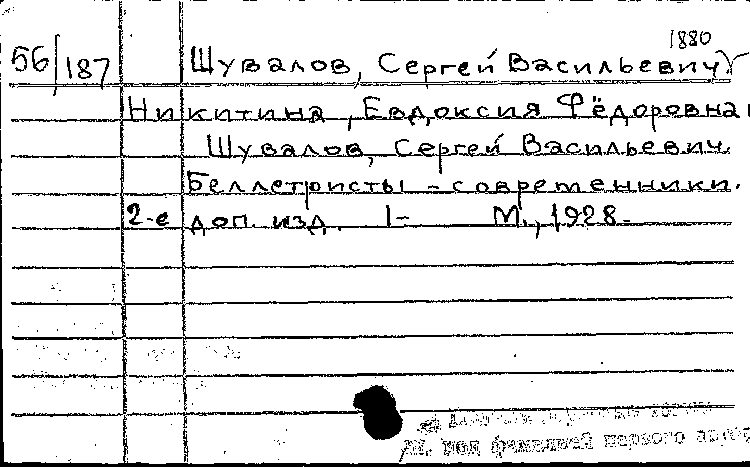 1880
56/187 Шувалов, Сергей Васильевич
Никитина, Евдоксия Фёдоровна
Шувалов, Сергей Васильевич.
Беллетристы-современники.
2-е доп. изд. I- М., 1928-
под фамилией первого